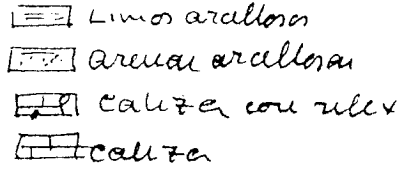 Limos arcillosos
arenas arcillosas
Caliza con silex
caliza